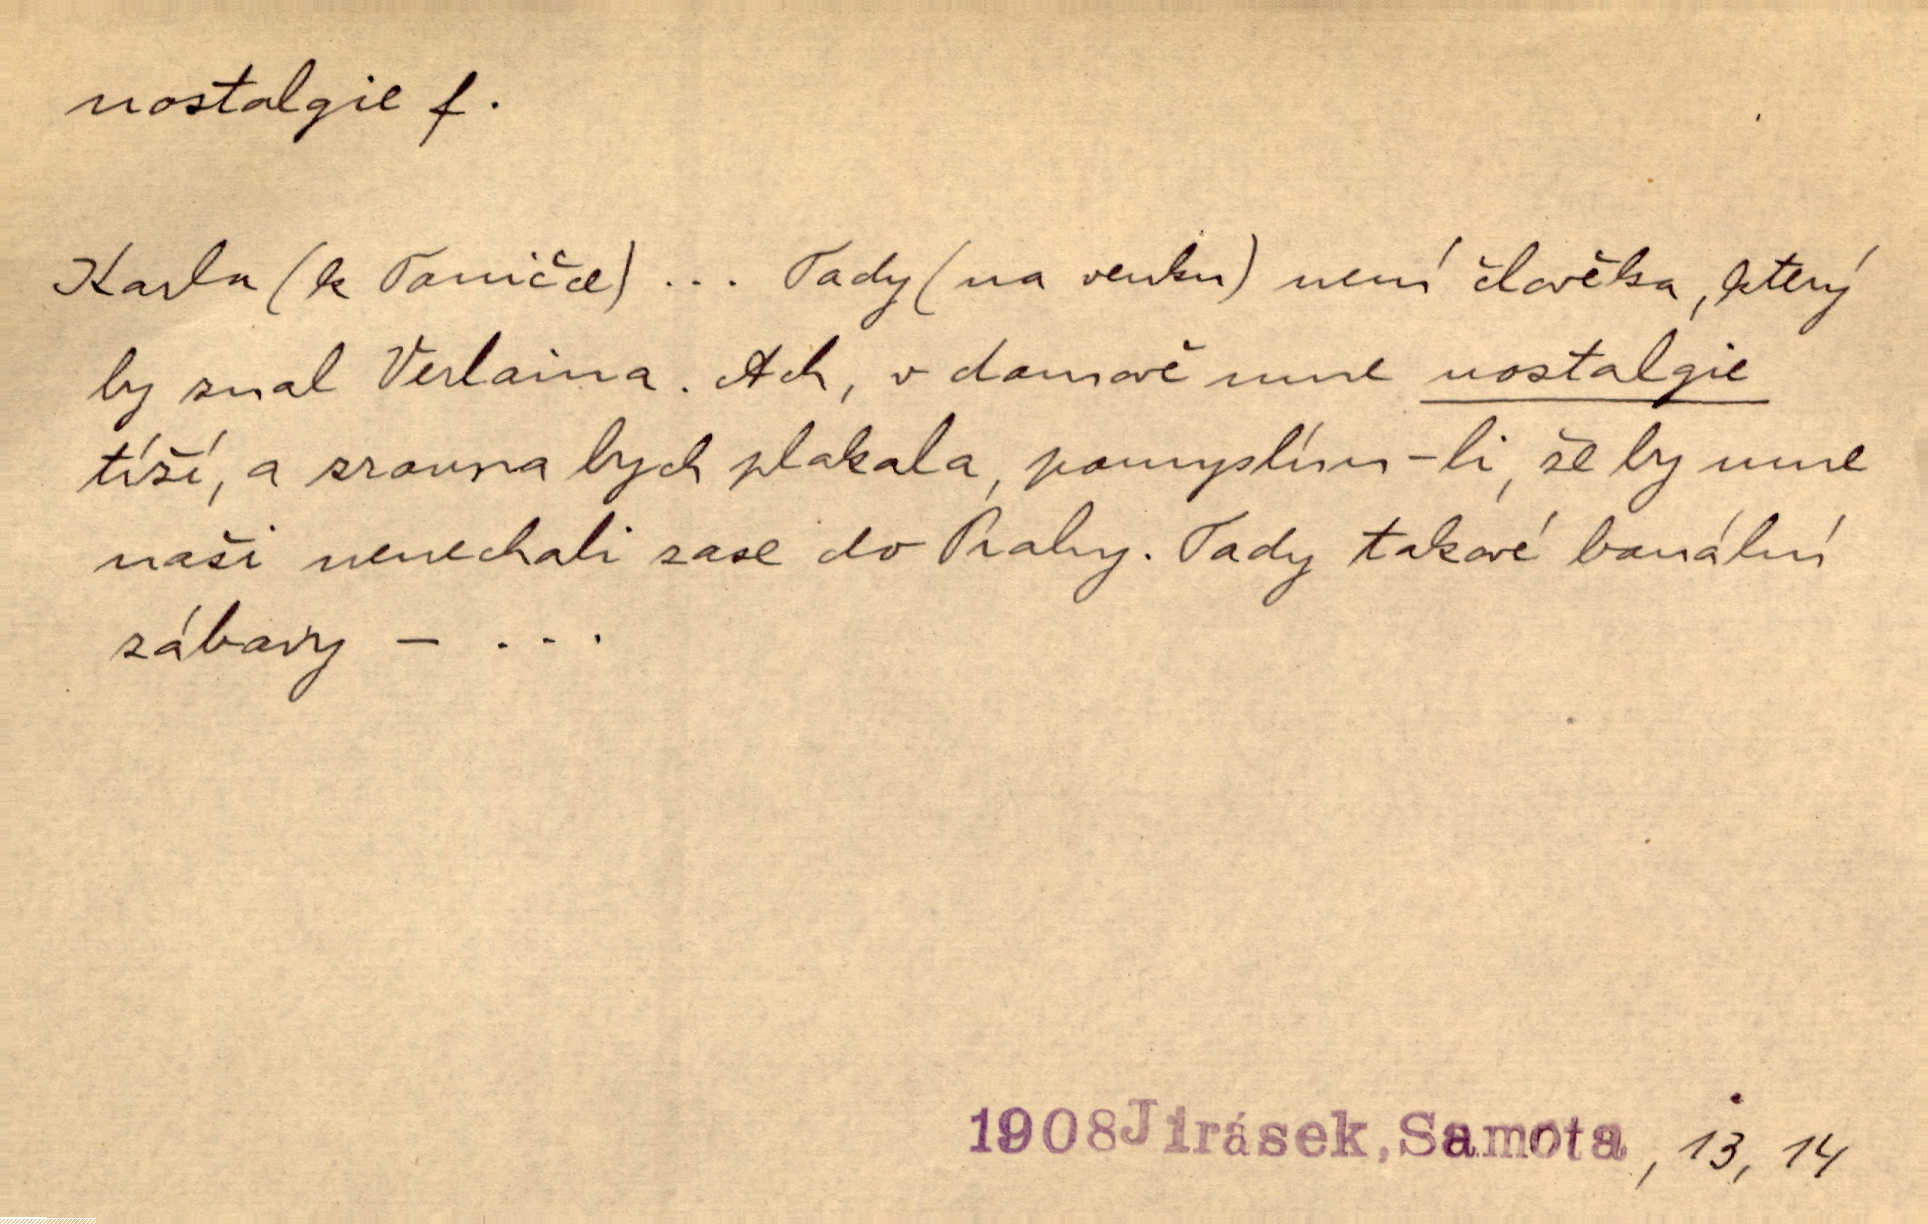 nostalgie f.
Karla (k Taničce) ... Tady (na venku) není člověka, který
by znal Verlaina. Ach, v domově mne nostalgie
tíží, a zrovna bych plakala, pomyslím-li, že by mne
naši nenechali zase do Prahy. Tady takové banální
zábavy – ...
1908 Jirásek, Samota, 13, 14